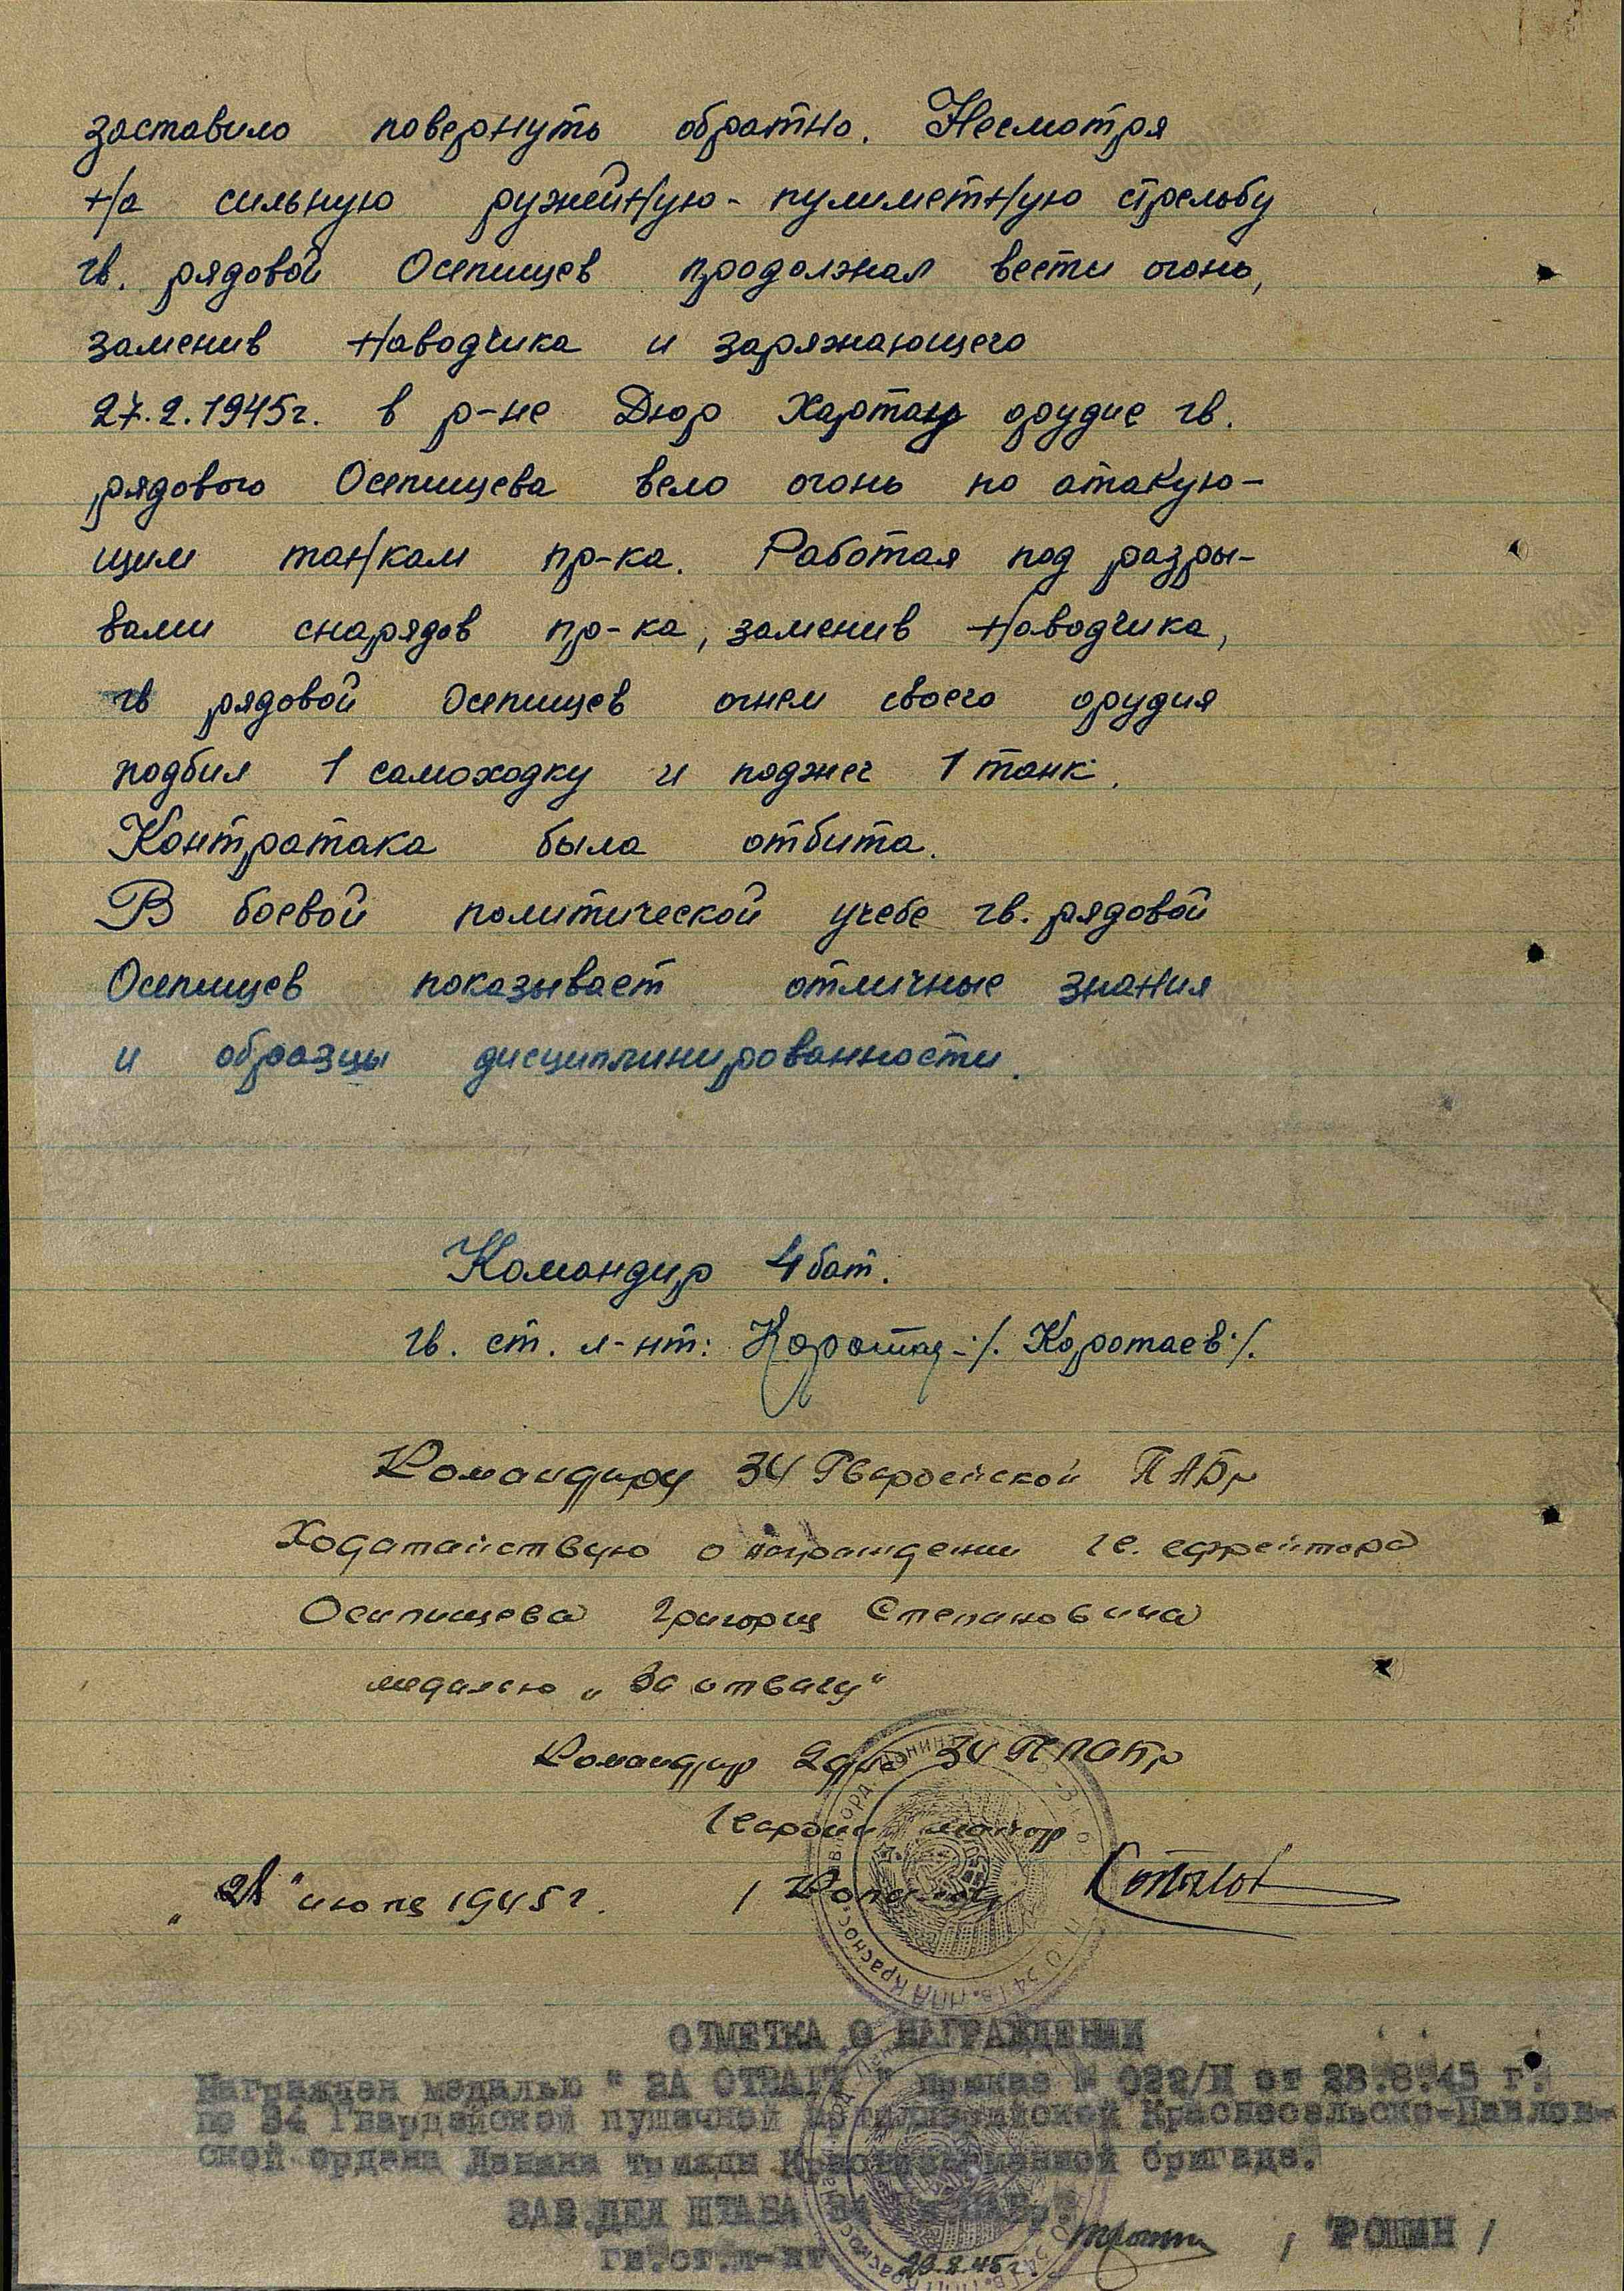 заставило повернуть обратно. Несмотря
на сильную ружейную-пулиметную стрельбу
гв. рядовой Осепищев продолжал вести огонь,
заменив наводчика и заряжающего
27.2.1945г. в р-не Дюр Хартян орудие гв.
рядового Осепищева вело огонь по атакую-
щим танкам пр-ка. Работая под разры-
вами снарядов пр-ка, заменив наводчика,
гв рядовой Осепищев огнем своего орудия
подбил 1 самоходку и поджег 1 танк.
Контратака была отбита.
В боевой политической учебе гв. рядовой
Осепищев показывает отличные знания
и образцы дисциплинированности.
Командир 4 бат.
гв. ст. л-нт: /. Коротаев /.
Командиру 34 Гвардейской ПАБр
Ходатайствую о награждении гв. ефрейтора
Осипищева Григория Степановича
медалью "За отвагу"
Командир 2 дно 34
Гвардии майор
"28" июля 1945 г. /
ОТМЕТКА О НАГРАЖДЕНИИ
Награжден медалью " ЗА ОТВАГУ " приказ № 022/Н от 28.8.45 г.
по 34 Гвардейской пушечной Артиллерийской Красносельско-Павлов-
ской ордена Ленина трижды Краснознаменной бригаде.
ЗАВ.ДЕЛ ШТАБА 34 Гв.ПАБр:
гв.ст.л-нт 29.8.45 г. / ТРОШИН /